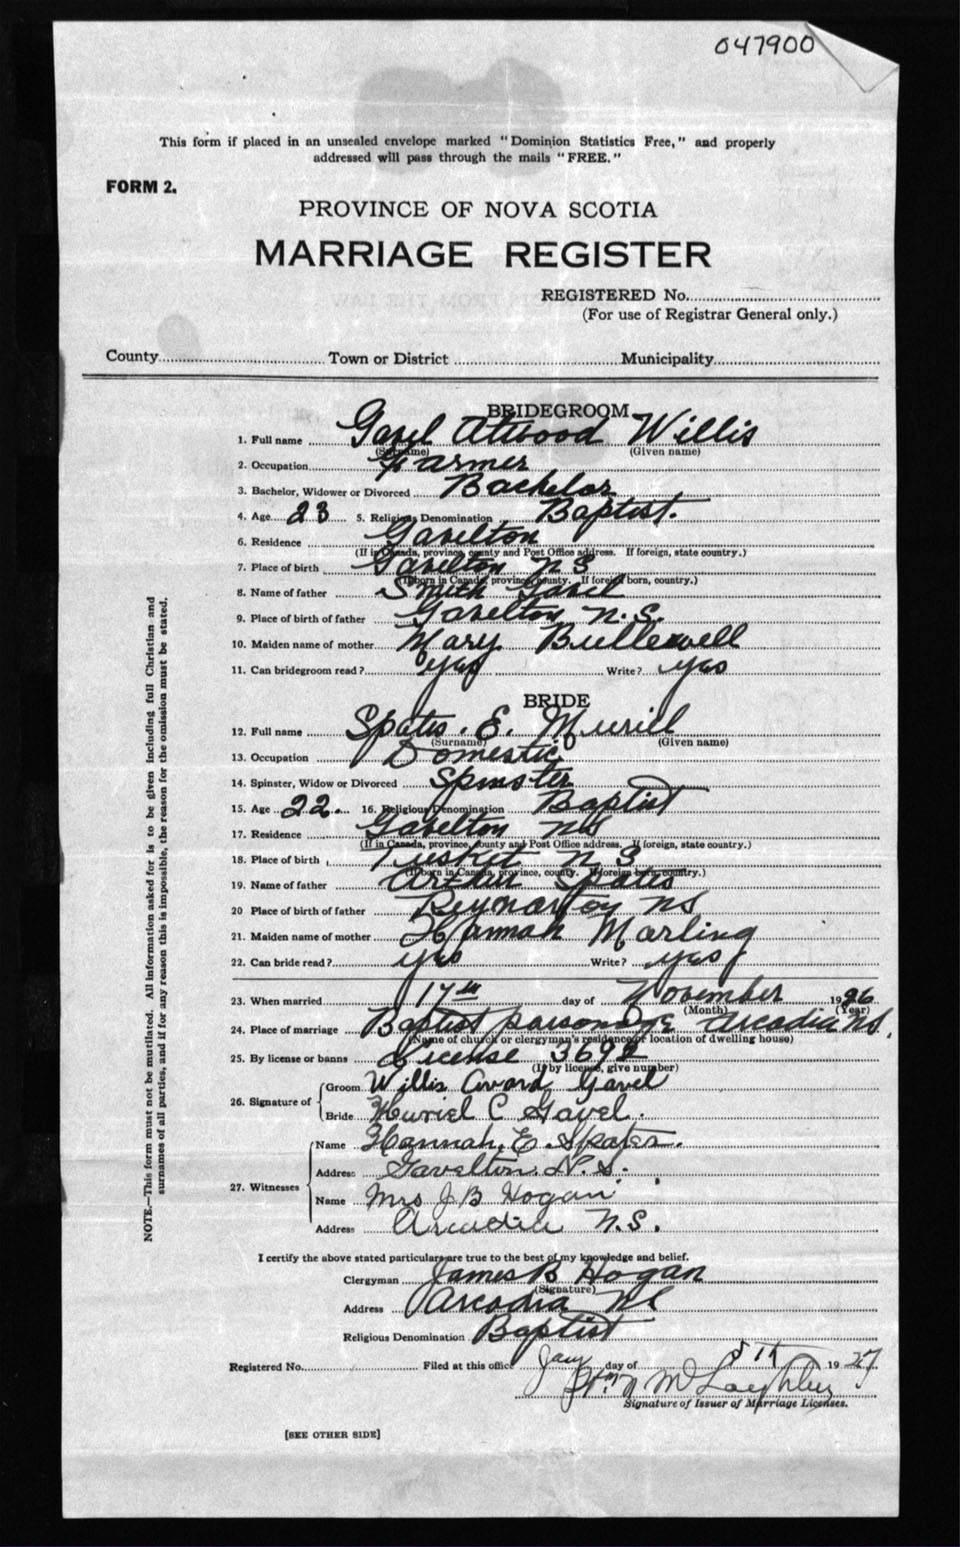 047900
This form if placed in an unsealed envelope marked "Dominion Statistics Free," and properly
addressed will pass through the mails "FREE."
FORM 2.
PROVINCE OF NOVA SCOTIA
MARRIAGE REGISTER
REGISTERED No.
(For use of Registrar General only.)
County Town or District Municipality
BRIDEGROOM
1. Full name Gavel Atwood Willis
(Surname) (Given name)
2. Occupation Farmer
3. Bachelor, Widower or Divorced Bachelor
4. Age 23 5. Religious Denomination Baptist.
6. Residence Gavelton
(If in Canada, province, county and Post Office address. If foreign, state country.)
7. Place of birth Gavelton N S
(If born in Canada, province, county. If foreign born, country.)
8. Name of father Smith Gavel
9. Place of birth of father Gavelton N.S.
10. Maiden name of mother Mary
11. Can bridegroom read? yes Write? yes
BRIDE
12. Full name Spates. E. Muriel
(Surname) (Given name)
13. Occupation Domestic
14. Spinster, Widow or Divorced Spinster
15. Age 22. 16. Religious Denomination Baptist
17. Residence Gavelton NS
(If in Canada, province, county and Post Office address. If foreign, state country.)
18. Place of birth Tusket N S
(If born in Canada, province, county. If foreign born, country.)
19. Name of father Arthur Spates
20 Place of birth of father NS
21. Maiden name of mother Hannah Marling
22. Can bride read? yes Write? yes
23. When married 17th day of November 1926
(Month) (Year)
24. Place of marriage Baptist parsonage Arcadia NS.
(Name of church or clergyman's residence or location of dwelling house)
25. By license or banns License 3692
(If by license, give number)
26. Signature of Groom Willis Gavel
Bride Muriel E Gavel.
27. Witnesses Name Hannah. E. Spates.
Address Gavelton. N. S.
Name Mrs J B Hogan
Address Arcadia N.S.
I certify the above stated particulars are true to the best of my knowledge and belief.
Clergyman James B Hogan
(Signature)
Address Arcadia NS
Religious Denomination Baptist
Registered No. Filed at this office Jany day of 1927
McLaughlin
Signature of Issuer of Marriage Licenses.
[SEE OTHER SIDE]
NOTE.—This form must not be mutilated. All information asked for is to be given including full Christian and
surnames of all parties, and if for any reason this is impossible, the reason for the omission must be stated.